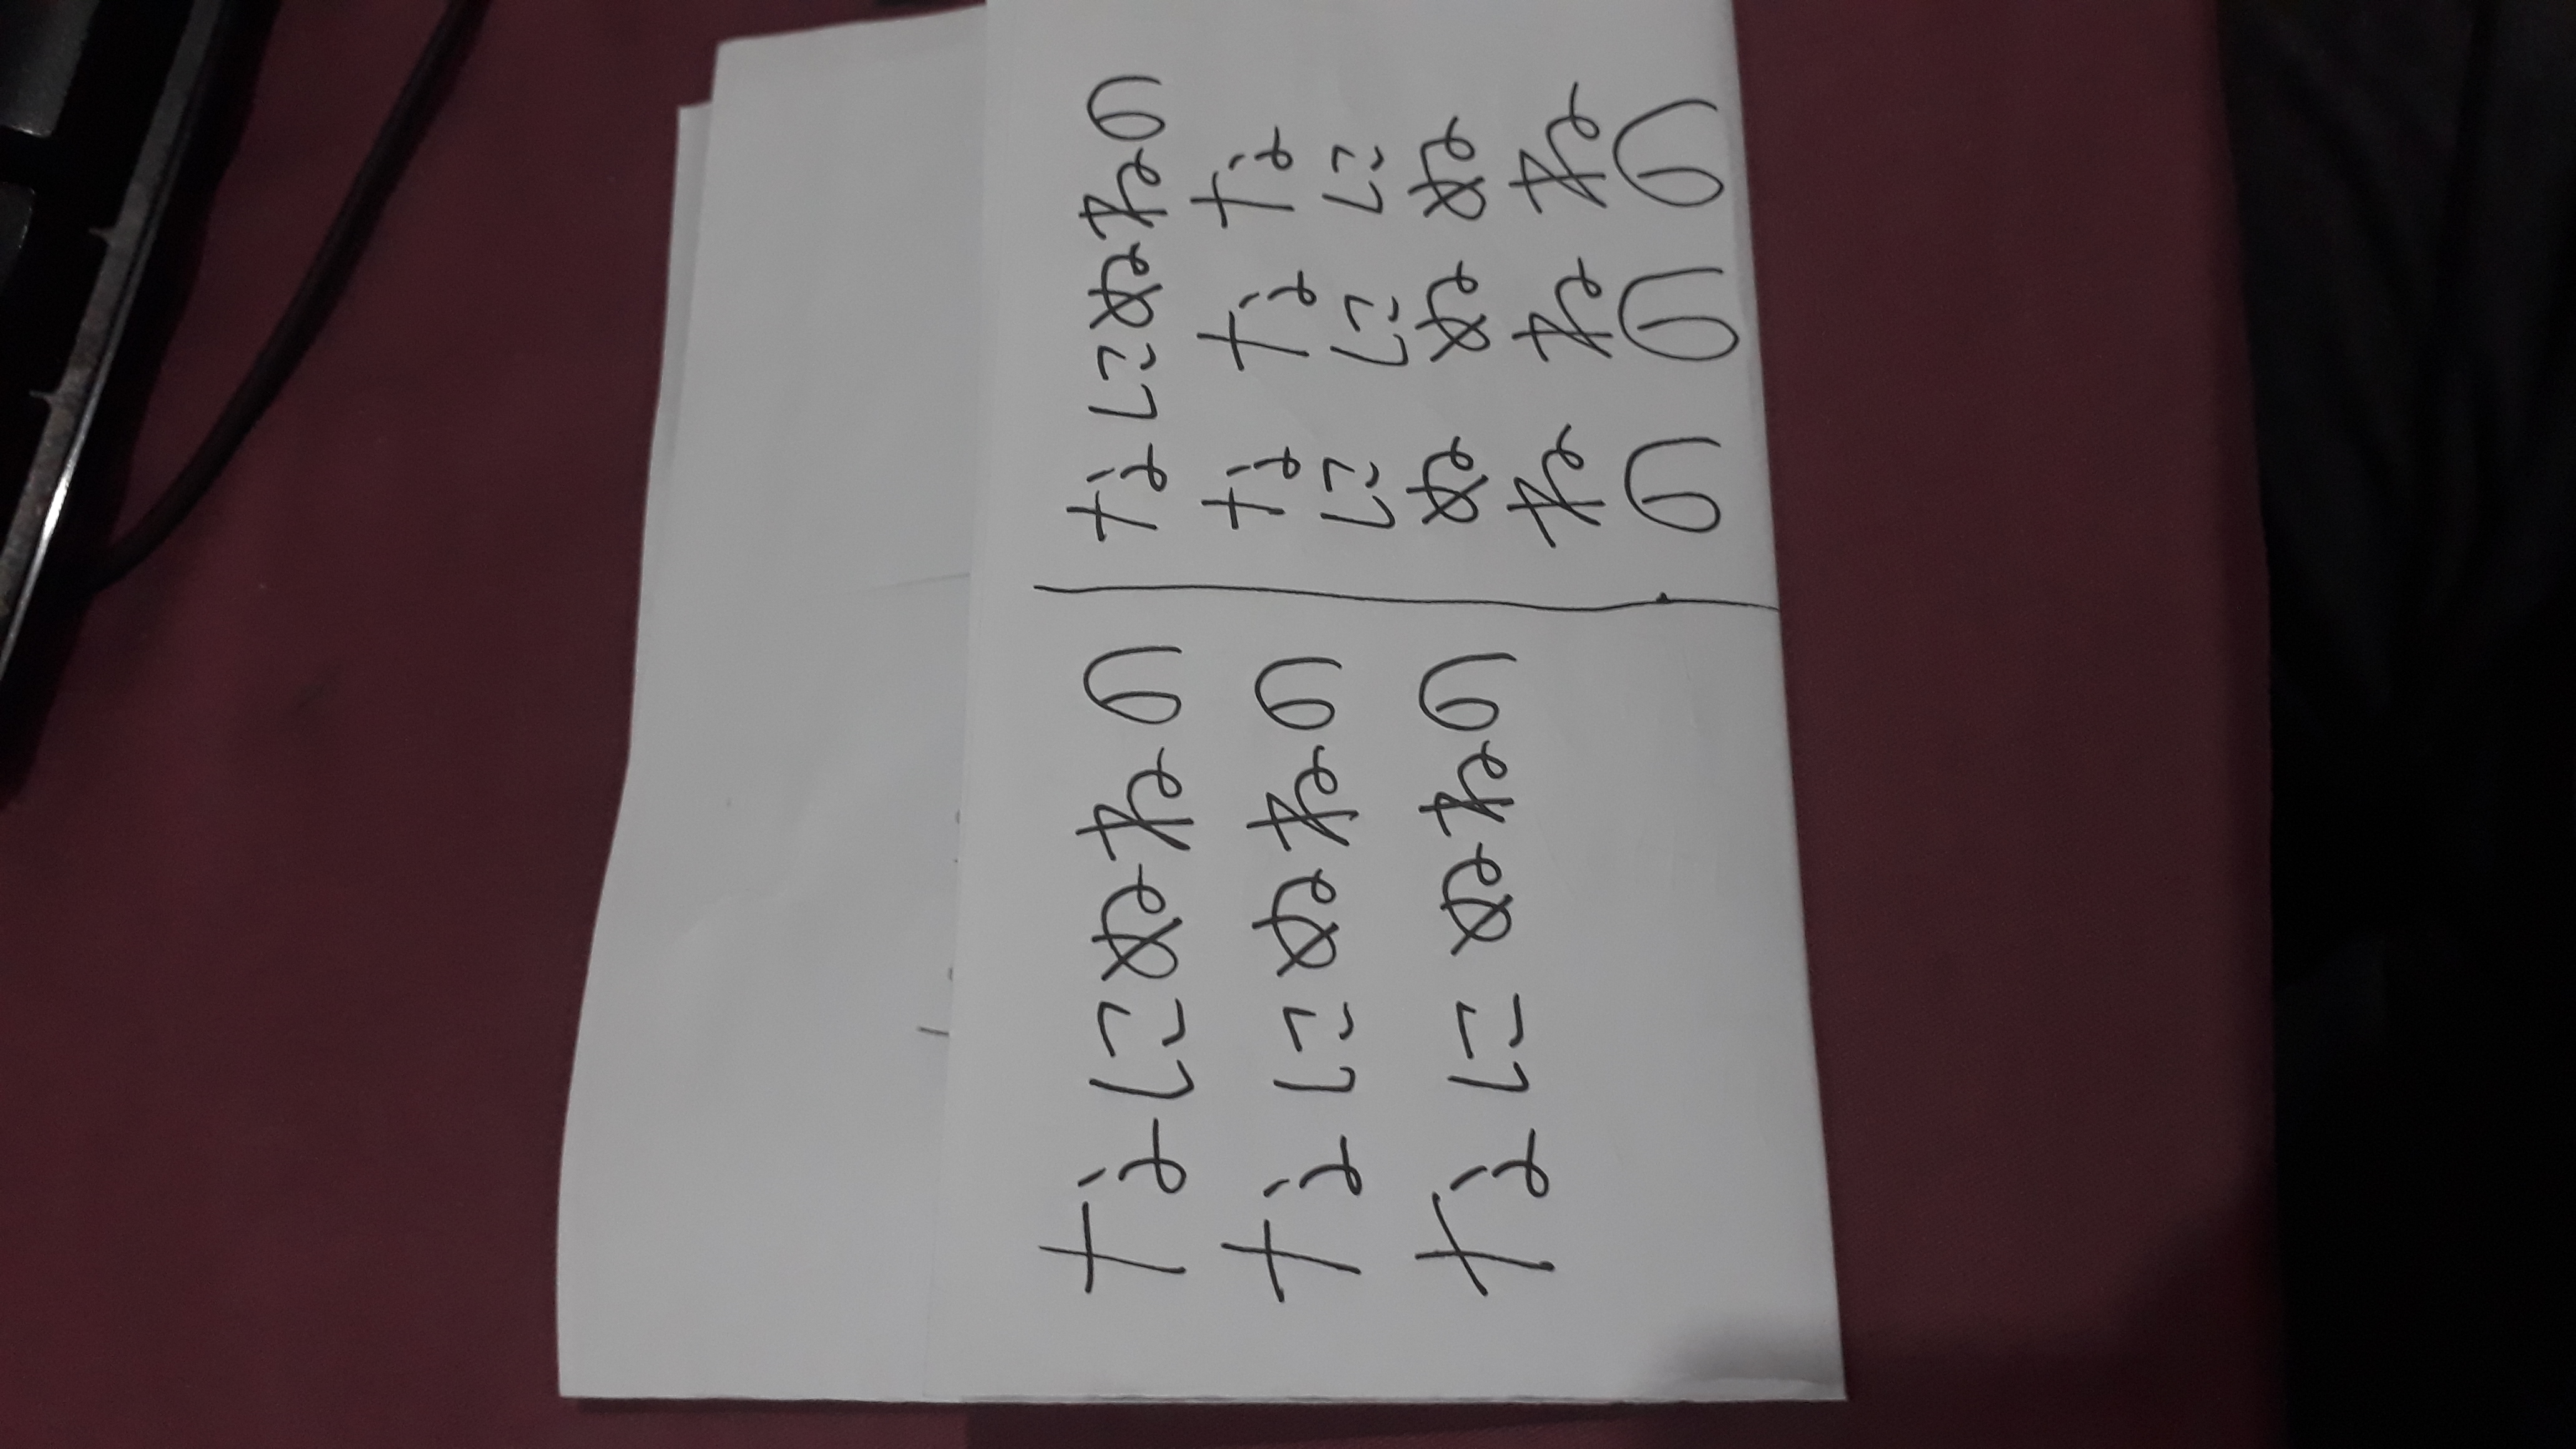 なにぬねの
なにぬねの
なにぬねの
なにぬねの
な な な
に に に
ぬ ぬ ぬ
ね ね ね
の の の